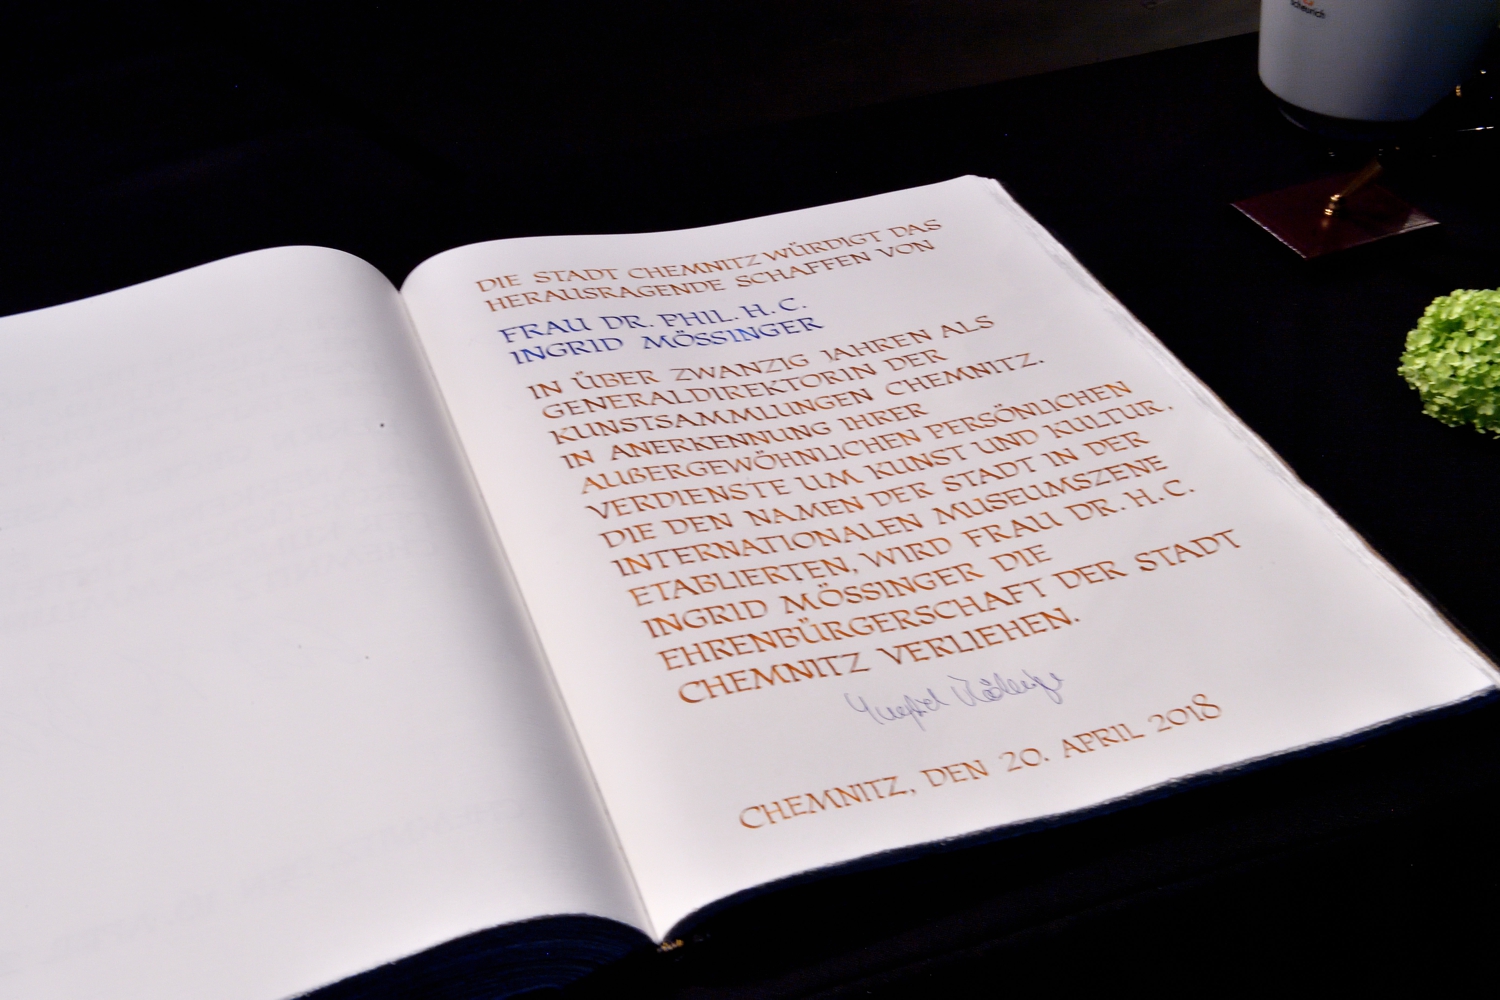 Scheurich
DIE STADT CHEMNITZ WÜRDIGT DAS
HERAUSRAGENDE SCHAFFEN VON
FRAU DR. PHIL. H. C.
INGRID MÖSSINGER
IN ÜBER ZWANZIG JAHREN ALS
GENERALDIREKTORIN DER
KUNSTSAMMLUNGEN CHEMNITZ.
IN ANERKENNUNG IHRER
AUßERGEWÖHNLICHEN PERSÖNLICHEN
VERDIENSTE UM KUNST UND KULTUR,
DIE DEN NAMEN DER STADT IN DER
INTERNATIONALEN MUSEUMSZENE
ETABLIERTEN, WIRD FRAU DR. H. C.
INGRID MÖSSINGER DIE
EHRENBÜRGERSCHAFT DER STADT
CHEMNITZ VERLIEHEN.
Ingrid Mössinger
CHEMNITZ, DEN 20. APRIL 2018